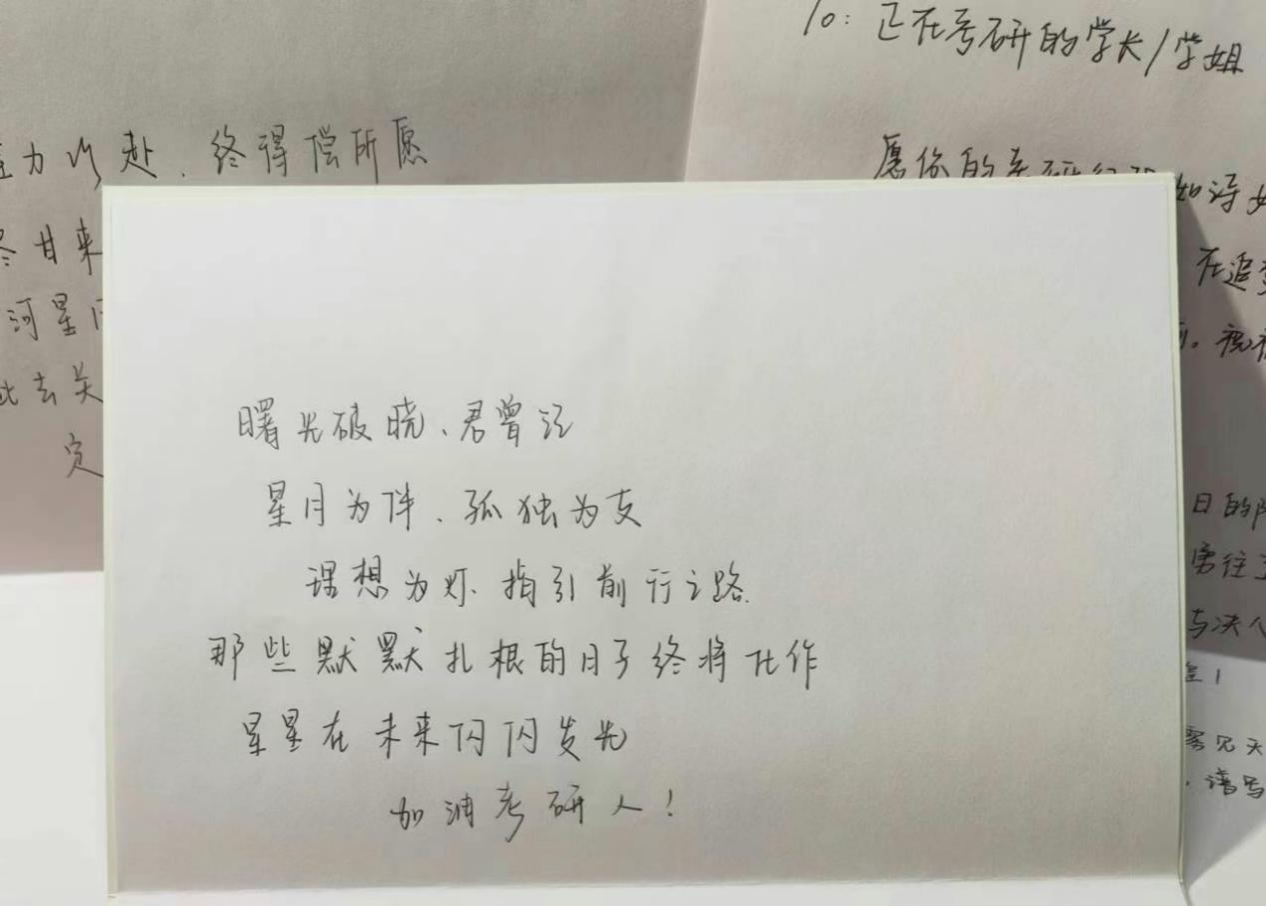 力以赴、终得偿所愿
甘来
河星
此去关
定
To: 正在考研的学长/学姐
愿你的考研
如诗
在追
。祝
曙光破晓、君曾记
星月为伴、孤独为友
理想为灯、指引前行之路.
那些默默扎根的日子终将化作
星星在未来闪闪发光
加油考研人!
日的
勇往
与决心
!
雾见天
,请写